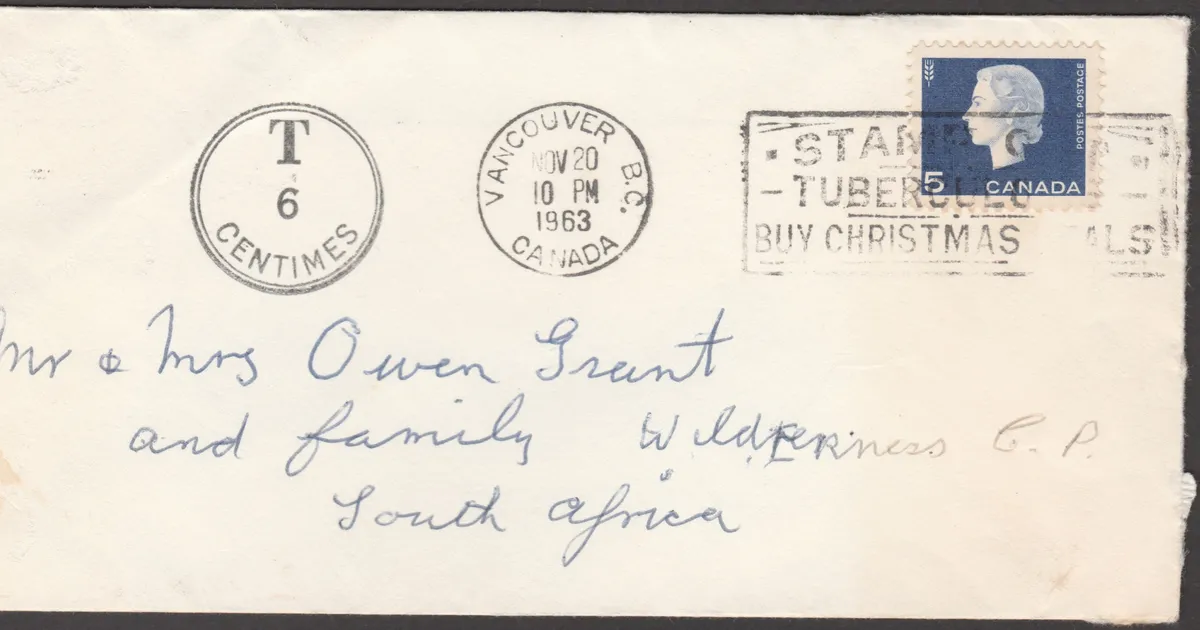 T
6
CENTIMES
VANCOUVER B.C.
NOV 20
10 PM
1963
CANADA
POSTES POSTAGE
5 CANADA
STAMP O
TUBERCULO
BUY CHRISTMAS ALS
Mr & Mrs Owen Grant
and family Wilderness C.P.
South Africa